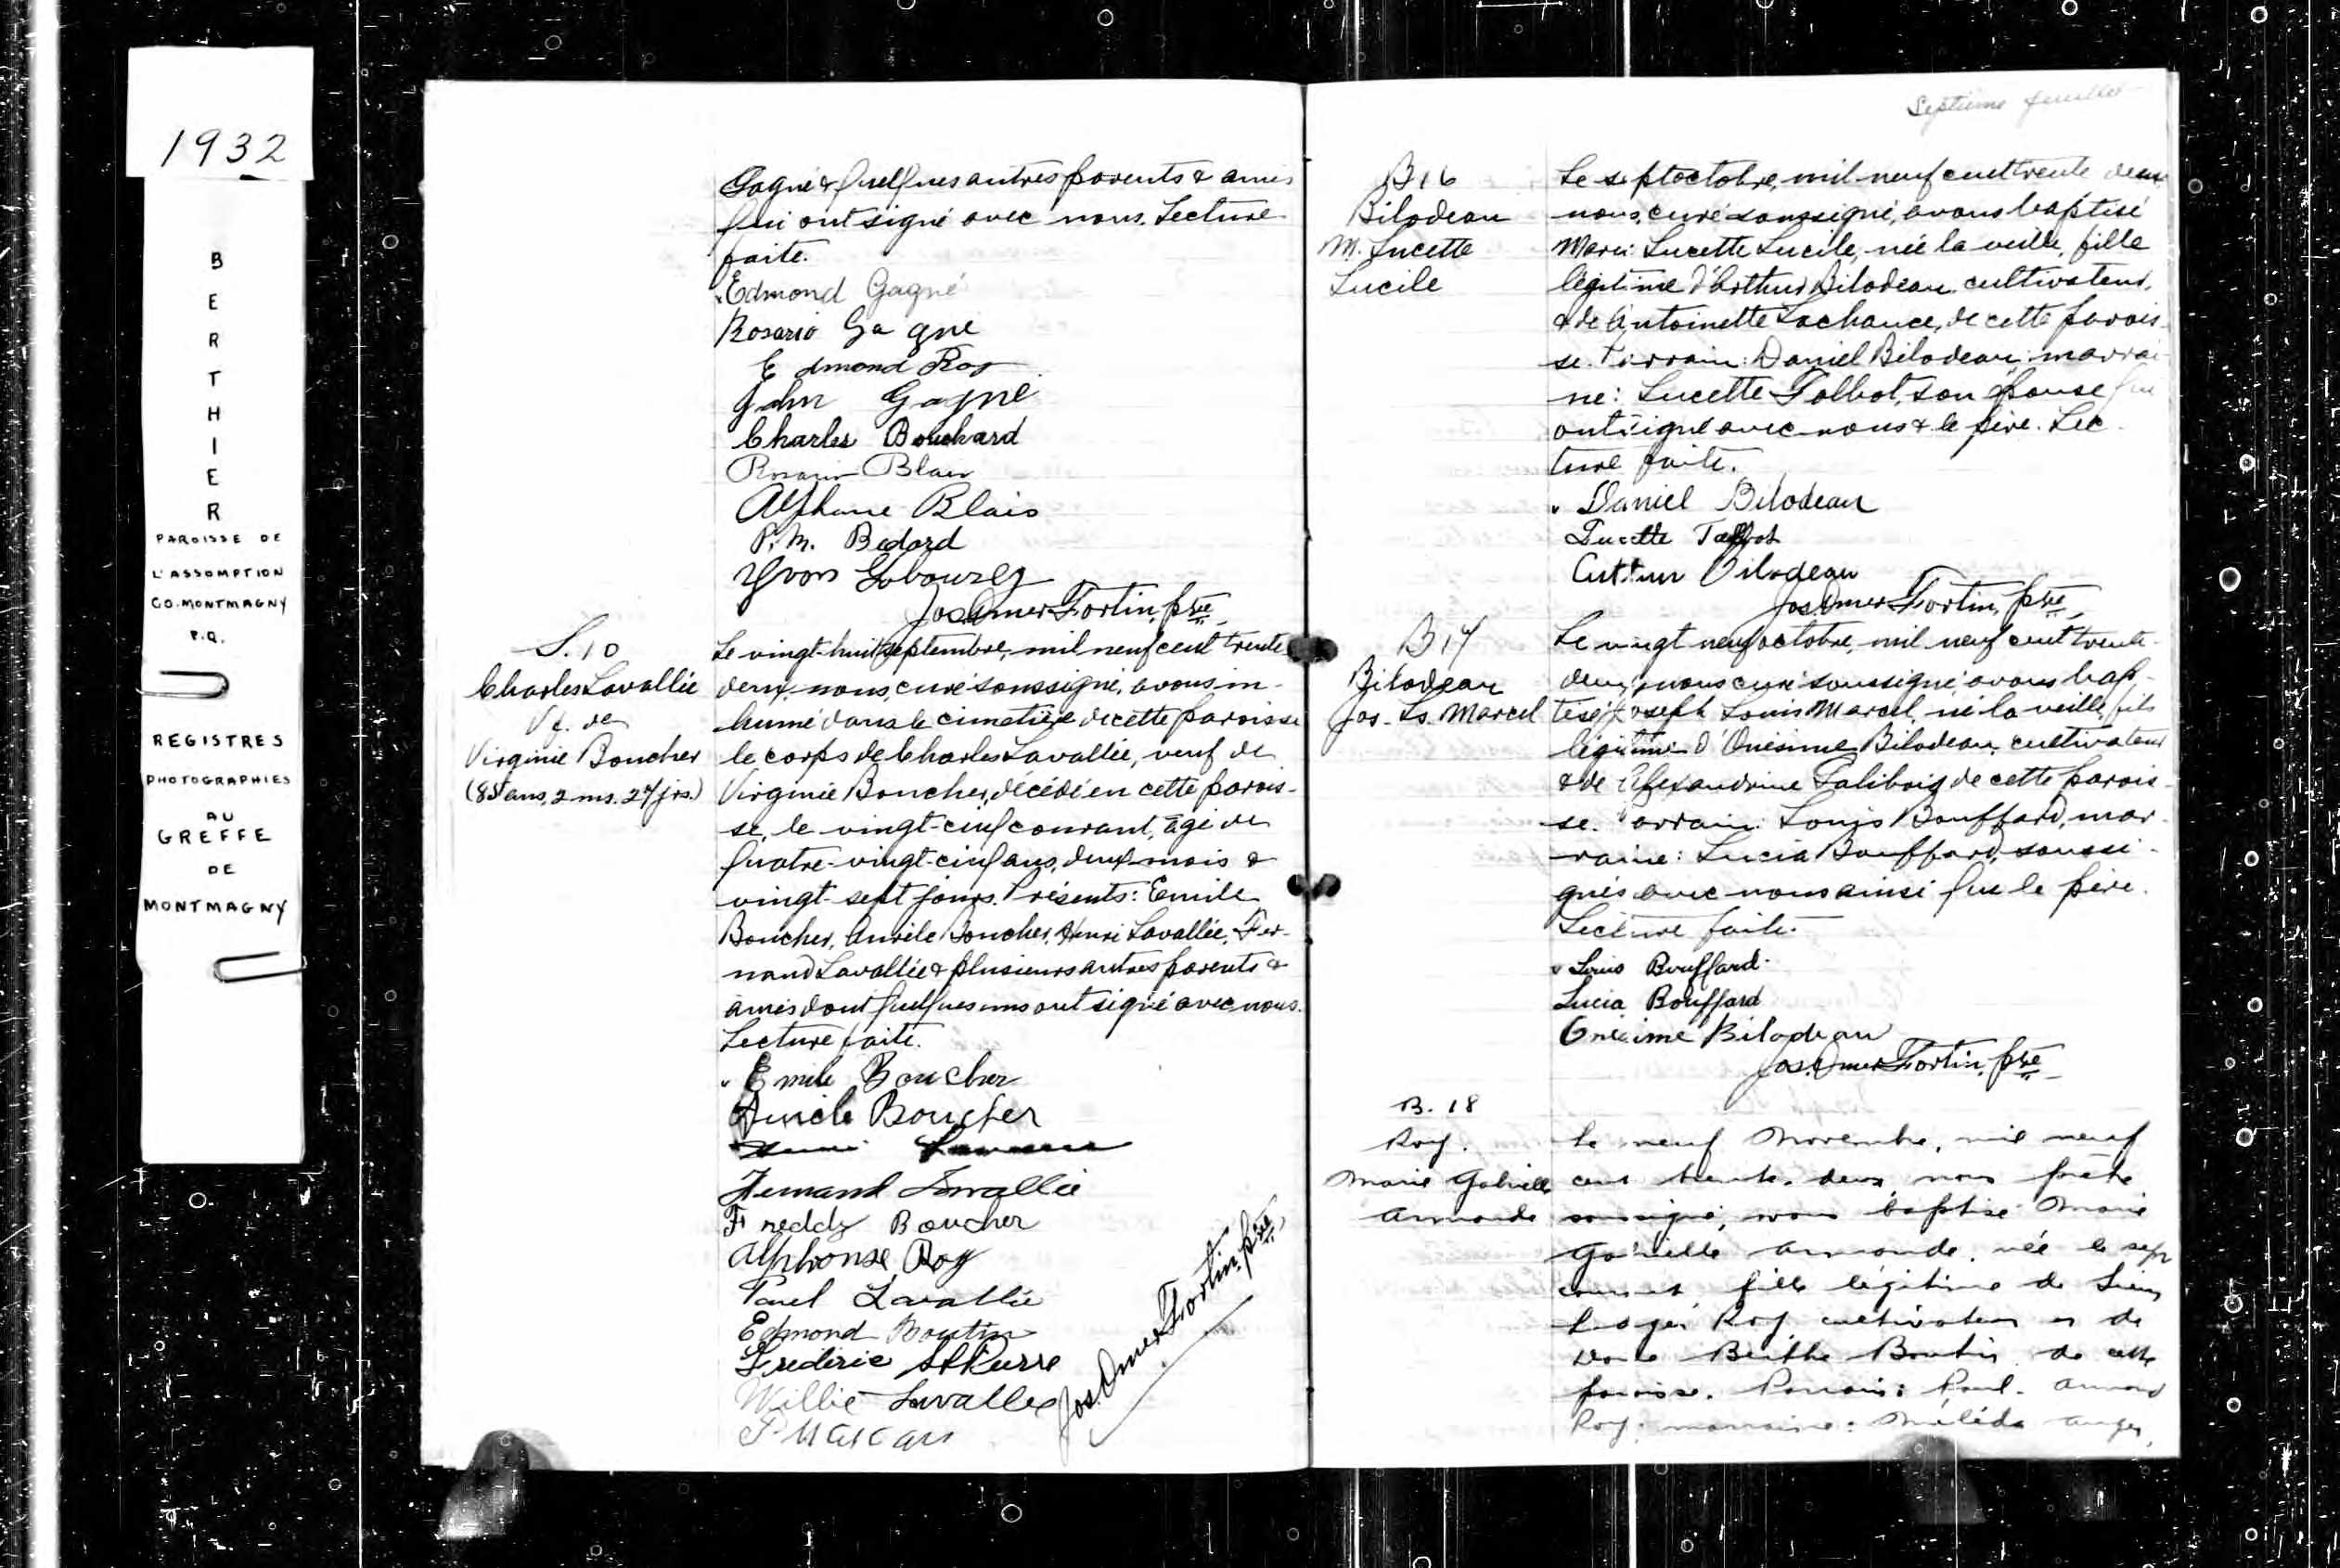 1932
BERTHIER
PAROISSE DE
L'ASSOMPTION
CO. MONTMAGNY
P.Q.
REGISTRES
PHOTOGRAPHIES
AU
GREFFE
DE
MONTMAGNY
Gagné & quelques autres parents & amis
qui ont signé avec nous. Lecture
faite.
Edmond Gagné
Rosario Gagné
Edmond Roy
John Gagné
Charles Bouchard
Blais
Alphonse Blais
P. M. Bedard
Yvon
Jos. Omer Fortin, ptre
S. 10
Charles Lavallée
Vf. de
Virginie Boucher
(85 ans, 2 ms. 27 jrs.)
Le vingt-huit septembre, mil neuf cent trente
deux, nous, curé soussigné, avons in-
humé dans le cimetière de cette paroisse
le corps de Charles Lavallée, veuf de
Virginie Boucher, décédé en cette parois-
se, le vingt-cinq courant, âgé de
quatre-vingt-cinq ans, deux mois &
vingt-sept jours. Présents: Emile
Boucher, Aurèle Boucher, Henri Lavallée, Fer-
nand Lavallée & plusieurs autres parents &
amis dont quelques uns ont signé avec nous.
Lecture faite.
Emile Boucher
Aurèle Boucher
Fernand Lavallée
Freddy Boucher
Alphonse Roy
Paul Lavallée
Edmond Boutin
Frederic St Pierre
Willie Lavallée
Jos. Omer Fortin, ptre
Septième feuillet
B 16
Bilodeau
M. Lucette
Lucile
Le sept octobre, mil neuf cent trente deux
nous, curé soussigné, avons baptisé
Marie Lucette Lucile, née la veille, fille
légitime d'Arthur Bilodeau, cultivateur,
& de Antoinette Lachance, de cette parois-
se. Parrain: Daniel Bilodeau: marrai-
ne: Lucette Talbot, son épouse qui
ont signé avec nous & le père. Lec-
ture faite.
Daniel Bilodeau
Lucette Talbot
Arthur Bilodeau
Jos. Omer Fortin, ptre
B 17
Bilodeau
Jos. Ls. Marcel
Le vingt neuf octobre, mil neuf cent trente-
deux, nous curé soussigné, avons bap-
tisé Joseph Louis Marcel, né la veille, fils
légitime d'Onésime Bilodeau, cultivateur
& de Alexandrine Galibois de cette parois-
se. Parrain: Louis Bouffard, mar-
raine: Lucia Bouffard, soussi-
gnés avec nous ainsi que le père.
Lecture faite.
Louis Bouffard
Lucia Bouffard
Onésime Bilodeau
Jos. Omer Fortin, ptre
B. 18
Roy.
Marie Gabrielle
Armande
Le neuf Novembre, mil neuf
cent trente-deux, nous prêtre
soussigné, avons baptisé Marie
Gabrielle Armande, née le sept
courant, fille légitime de Sieur
Roy cultivateur et de
Dame Berthe Boutin de cette
paroisse. Parrain: Paul-Armand
Roy: marraine: Anger,